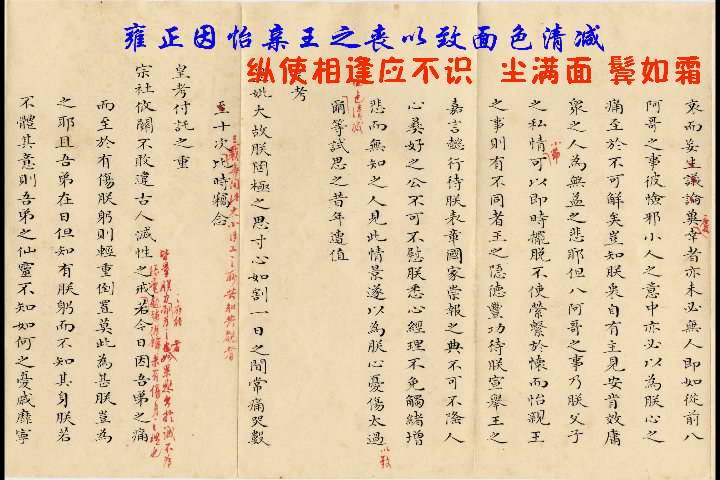 雍正因怡亲王之丧以致面色清减
纵使相逢应不识 尘满面 鬓如霜
衷而妄生議論冀幸者亦未必無人即如從前八
阿哥之事彼憸邪小人之意中亦必以為朕心之
痛至於不可解矣豈知朕衷自有主見安肯效庸
衆之人為無益之悲耶但八阿哥之事乃朕父子
小節
之私情可以即時擺脫不使縈繫於懷而怡親王
之事則有不同者王之隐德豐功待朕宣舉王之
嘉言懿行待朕表章國家崇報之典不可不隆人
心彝好之公不可不慰朕悉心經理不免觸緒增
悲而無知之人見此情景遂以為朕心憂傷太過
以致
色清減
爾等試思之昔年遭值
考
妣大故朕罔極之思寸心如割一日之間常痛哭數
至十次此時念
小臣工之所共知共覩者
皇考付託之重
宗社攸關不敢違古人滅性之戒若今日因吾弟之痛
而至於有傷朕躬則輕重倒置莫此為甚朕豈為
之耶且吾弟在日但知有朕躬而不知其身朕若
不體其意則吾弟之仙靈不知如何之憂戚靡寧